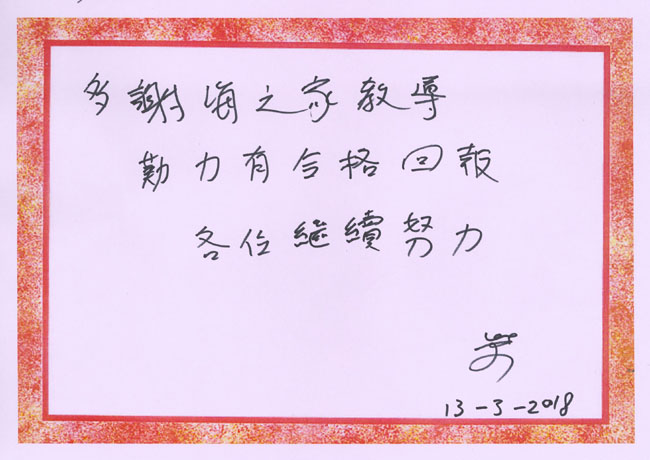 多謝海之家教導
勤力有合格回報
各位繼續努力
13-3-2018